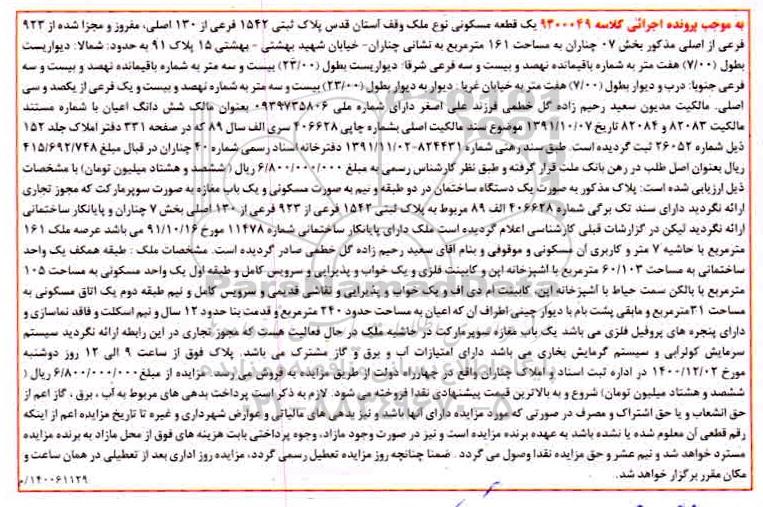 به موجب پرونده اجرائی کلاسه ۹۳۰۰۰۴۹ یک قطعه مسکونی نوع ملک وقف آستان قدس پلاک ثبتی ۱۵۴۲ فرعی از ۱۳۰ اصلی، مفروز و مجزا شده از ۹۲۳
فرعی از اصلی مذکور بخش ۰۷ چناران به مساحت ۱۶۱ مترمربع به نشانی چناران- خیابان شهید بهشتی - بهشتی ۱۵ پلاک ۹۱ به حدود: شمالا: دیواریست
بطول (۷/۰۰) هفت متر به شماره باقیمانده نهصد و بیست و سه فرعی شرقا: دیواریست بطول (۲۳/۰۰) بیست و سه متر به شماره باقیمانده نهصد و بیست و سه
فرعی جنوبا: درب و دیوار بطول (۷/۰۰) هفت متر به خیابان غربا : دیوار به دیوار بطول (۲۳/۰۰) بیست و سه متر به شماره نهصد و بیست و یک فرعی از یکصد و سی
اصلی. مالکیت مدیون سعید رحیم زاده گل خطمی فرزند علی اصغر دارای شماره ملی ۰۹۳۹۷۳۵۸۰۶ بعنوان مالک شش دانگ اعیان با شماره مستند
مالکیت ۸۲۰۸۳ و ۸۲۰۸۴ تاریخ ۱۳۹۱/۱۰/۰۷ موضوع سند مالکیت اصلی بشماره چاپی ۴۰۶۶۲۸ سری الف سال ۸۹ که در صفحه ۳۳۱ دفتر املاک جلد ۱۵۲
ذیل شماره ۲۶۰۵۲ ثبت گردیده است. طبق سند رهنی شماره ۸۲۴۴۳۱-۱۳۹۱/۱۱/۰۲ دفترخانه اسناد رسمی شماره ۴۰ چناران در قبال مبلغ ۴۱۵/۶۹۲/۷۴۸
ریال بعنوان اصل طلب در رهن بانک ملت قرار گرفته و طبق نظر کارشناس رسمی به مبلغ ۶/۸۰۰/۰۰۰/۰۰۰ ریال (ششصد و هشتاد میلیون تومان) با مشخصات
ذیل ارزیابی شده است: پلاک مذکور به صورت یک دستگاه ساختمان در دو طبقه و نیم به صورت مسکونی و یک باب مغازه به صورت سوپرمارکت که مجوز تجاری
ارائه نگردید دارای سند تک برگی شماره ۴۰۶۶۲۸ الف ۸۹ مربوط به پلاک ثبتی ۱۵۴۲ فرعی از ۹۲۳ فرعی از ۱۳۰ اصلی بخش ۷ چناران و پایانکار ساختمانی
ارائه نگردید لیکن در گزارشات قبلی کارشناسی اعلام گردیده است ملک دارای پایانکار ساختمانی شماره ۱۱۴۷۸ مورخ ۹۱/۱۰/۱۶ می باشد عرصه ملک ۱۶۱
مترمربع با حاشیه ۷ متر و کاربری آن مسکونی و موقوفی و بنام آقای سعید رحیم زاده گل خطمی صادر گردیده است. مشخصات ملک : طبقه همکف یک واحد
ساختمانی به مساحت ۶۰/۱۰۳ مترمربع با آشپزخانه اپن و کابینت فلزی و یک خواب و پذیرایی و سرویس کامل و طبقه اول یک واحد مسکونی به مساحت ۱۰۵
مترمربع با بالکن سمت حیاط با آشپزخانه اپن، کابینت ام دی اف و یک خواب و پذیرایی و نقاشی قدیمی و سرویس کامل و نیم طبقه دوم یک اتاق مسکونی به
مساحت ۳۱مترمربع و مابقی پشت بام با دیوار چینی اطراف آن که اعیان به مساحت حدود ۲۴۰ مترمربع و قدمت بنا حدود ۱۲ سال و نیم اسکلت و فاقد نماسازی و
دارای پنجره های پروفیل فلزی می باشد یک باب مغازه سوپرمارکت در حاشیه ملک در حال فعالیت هست که مجوز تجاری در این رابطه ارائه نگردید سیستم
سرمایش کولرآبی و سیستم گرمایش بخاری می باشد دارای امتیازات آب و برق و گاز مشترک می باشد. پلاک فوق از ساعت ۹ الی ۱۲ روز دوشنبه
مورخ ۱۴۰۰/۱۲/۰۲ در اداره ثبت اسناد و املاک چناران واقع در چهارراه دولت از طریق مزایده به فروش می رسد. مزایده از مبلغ۶/۸۰۰/۰۰۰/۰۰۰ ریال (
ششصد و هشتاد میلیون تومان) شروع و به بالاترین قیمت پیشنهادی نقدا فروخته می شود. لازم به ذکر است پرداخت بدهی های مربوط به آب ، برق ، گاز اعم از
حق انشعاب و یا حق اشتراک و مصرف در صورتی که مورد مزایده دارای آنها باشد و نیز بدهی های مالیاتی و عوارض شهرداری و غیره تا تاریخ مزایده اعم از اینکه
رقم قطعی آن معلوم شده یا نشده باشد به عهده برنده مزایده است و نیز در صورت وجود مازاد، وجوه پرداختی بابت هزینه های فوق از محل مازاد به برنده مزایده
مسترد خواهد شد و نیم عشر و حق مزایده نقدا وصول می گردد . ضمنا چنانچه روز مزایده تعطیل رسمی گردد، مزایده روز اداری بعد از تعطیلی در همان ساعت و
مکان مقرر برگزار خواهد شد. ۱۴۰۰۶۱۱۲۹/م